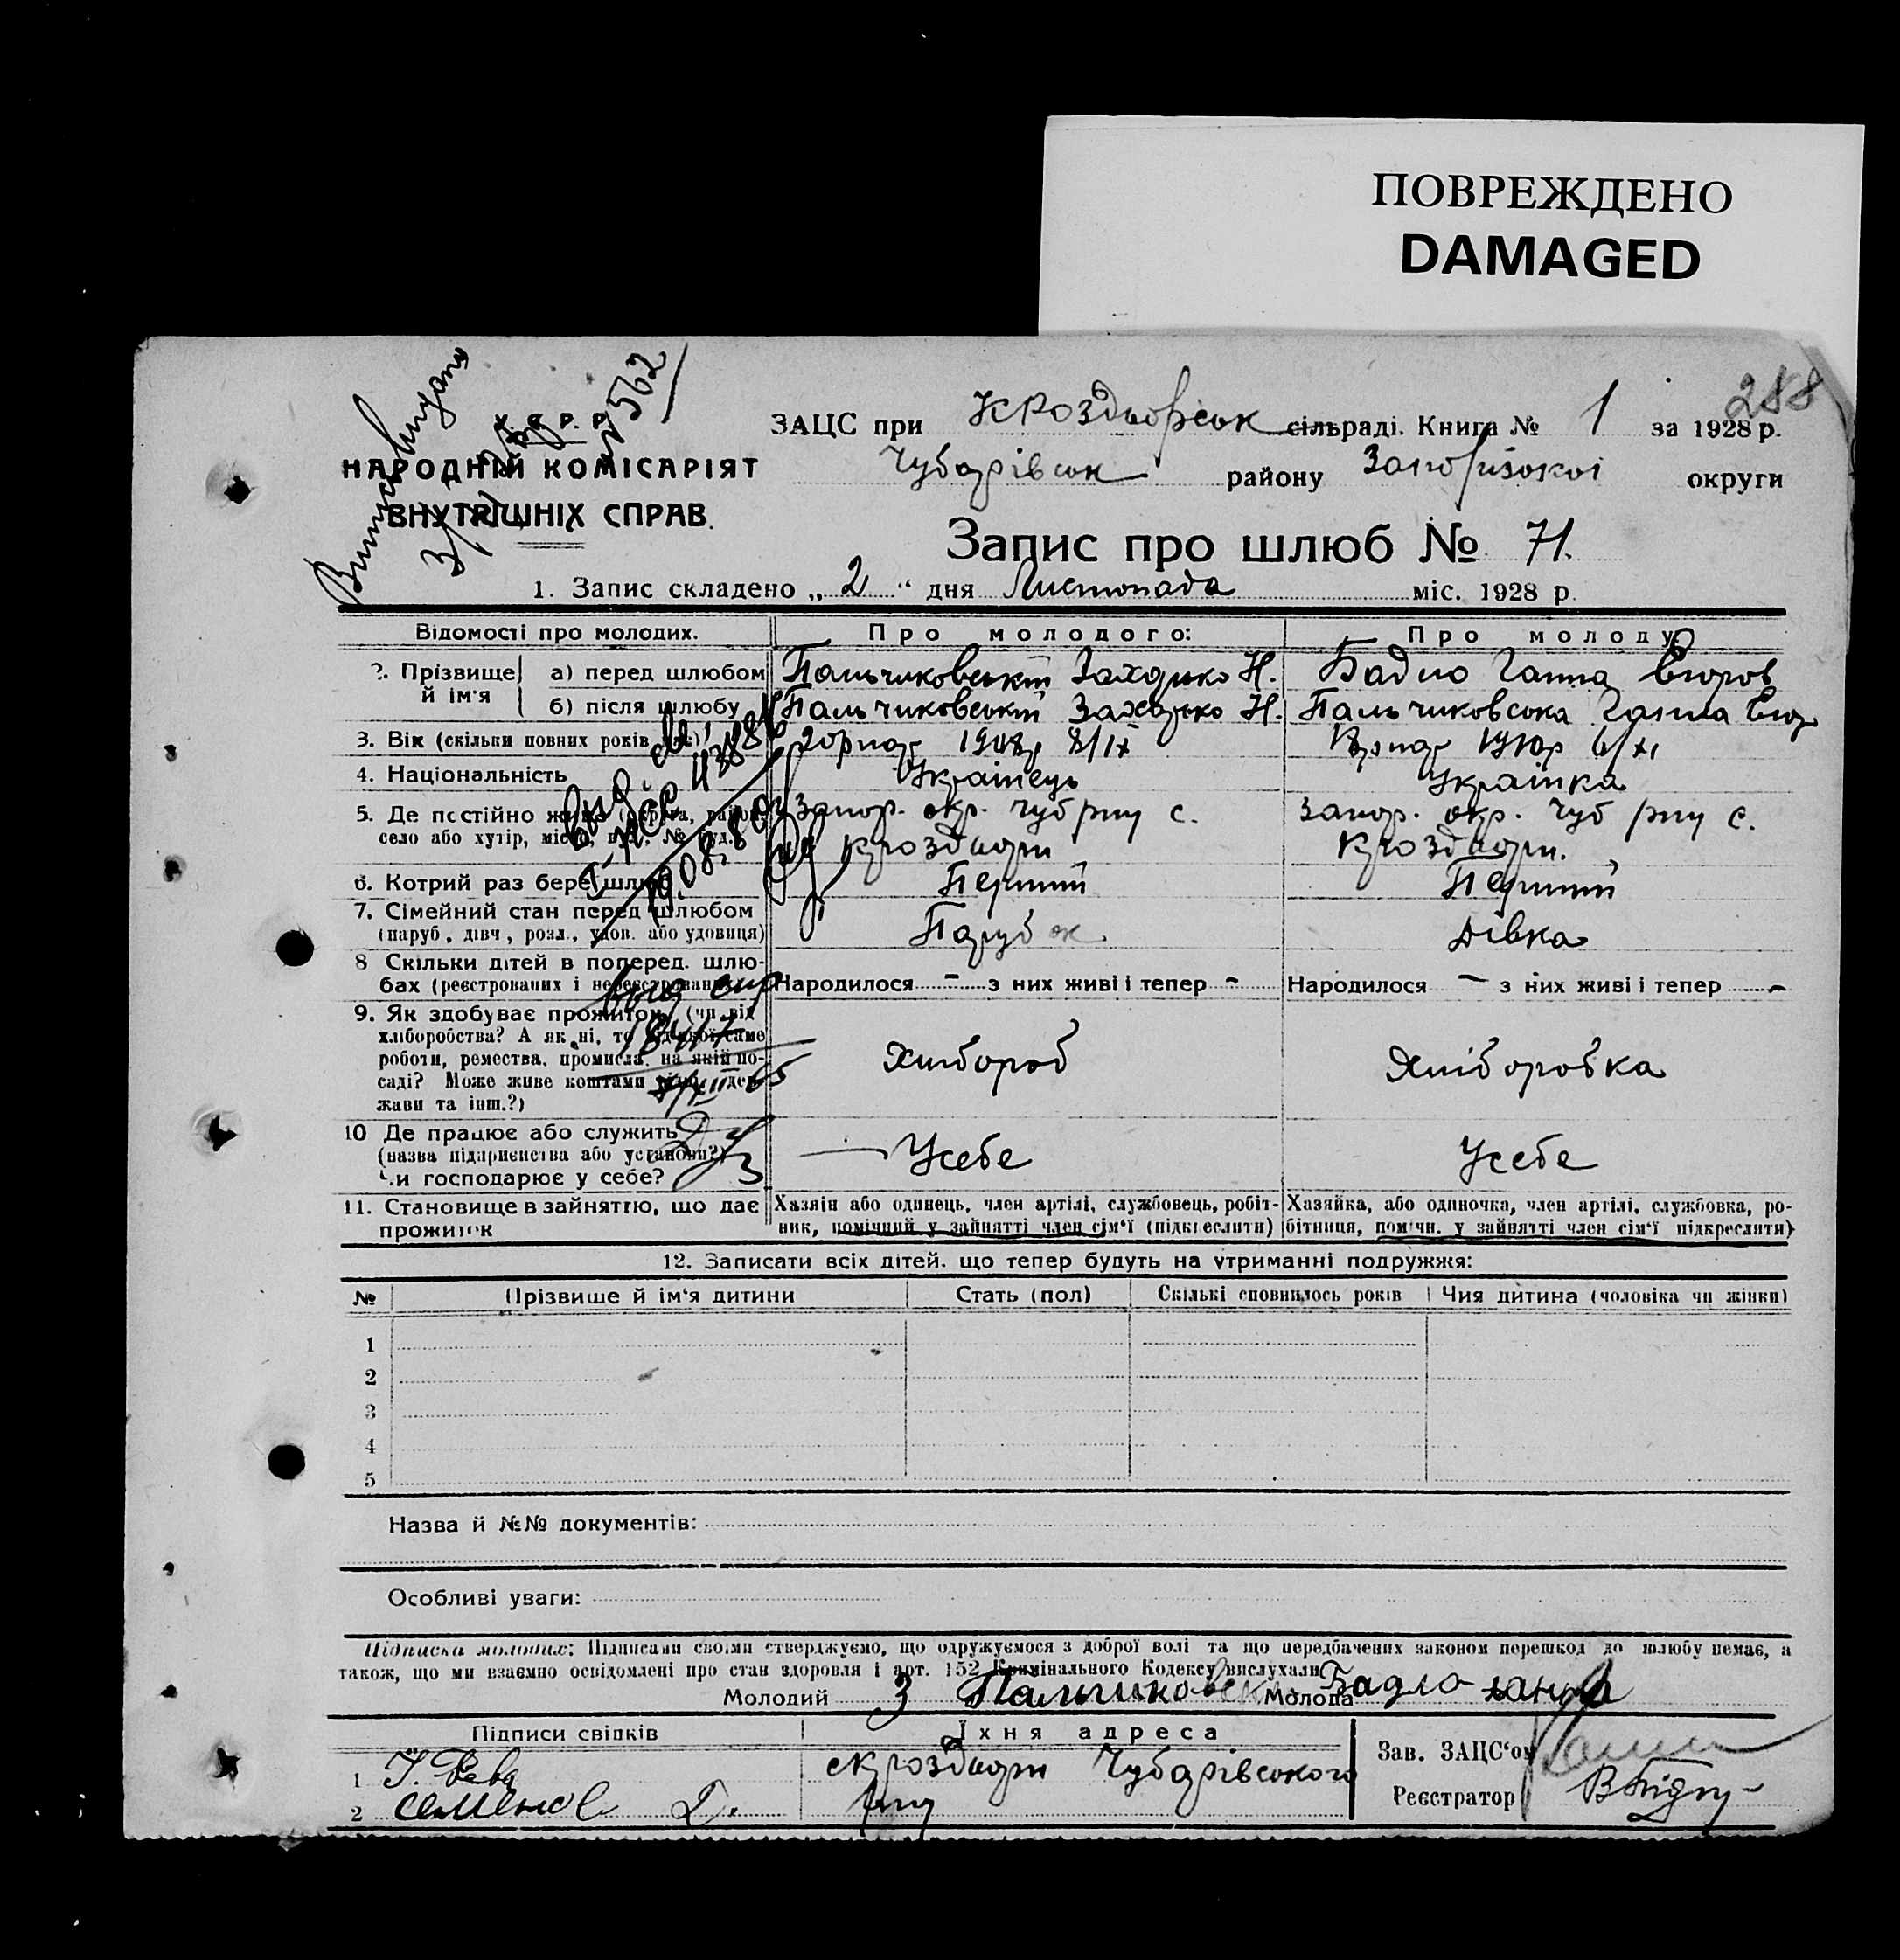 ПОВРЕЖДЕНО
DAMAGED
288
562
У. С. Р. Р.
НАРОДНІЙ КОМІСАРІЯТ
ВНУТРІШНІХ СПРАВ.
ЗАЦС при Кроздорськ сільраді. Книга № 1 за 1928 р.
Чубарівськ району Запорізької округи
Запис про шлюб № 71.
1. Запис складено „ 2 “ дня Листопада міс. 1928 р.
Відомості про молодих. Про молодого: Про молоду
2. Прізвище й ім'я а) перед шлюбом Пальчиковський Захарько Н. Бадло Ганна Єгоров
б) після шлюбу Пальчиковський Захарько Н. Пальчиковська Ганна Єгор
3. Вік (скільки повних років 1908р 8/IX 1910р 6/XI
4. Національність Українець Українка
5. Де постійно живе (округа, район, Запор. окр. Чуб рну с. Запор. окр. Чуб рну с.
село або хутір, місто, вул., № буд. Кроздори Кроздори.
6. Котрий раз бере шлюб Перший Перший
7. Сімейний стан перед шлюбом
(паруб., дівч., розл., удов. або удовиця) Парубок Дівка
8 Скільки дітей в поперед. шлю-
бах (реєстрованих і нереєстрованих) Народилося – з них живі і тепер – Народилося – з них живі і тепер –
9. Як здобуває прожиток (чи від
хліборобства? А як ні, то від якої саме
роботи, ремества, промисла, на якій по-
саді? Може живе коштами рідні, дер-
жави та інш.?) Хлібороб Хліборобка
10 Де працює або служить
(назва підприємства або установи?)
Чи господарює у себе? Усебе Усебе
11. Становище в зайняттю, що дає
прожиток
Хазяїн або одинець, член артілі, службовець, робіт-
ник, помічний у зайнятті член сім'ї (підкреслити)
Хазяйка, або одиночка, член артілі, службовка, ро-
бітниця, помічн. у зайнятті член сім'ї підкреслити)
12. Записати всіх дітей. що тепер будуть на утриманні подружжя:
№ Прізвище й ім'я дитини Стать (пол) Скількі сповнилось років Чия дитина (чоловіка чи жінки)
1
2
3
4
5
Назва й №№ документів:
Особливі уваги:
Підписка молодих: Підписами своїми стверджуємо, що одружуємося з доброї волі та що передбачених законом перешкод до шлюбу немає, а
також, що ми взаємно освідомлені про стан здоровля і арт. 152 Кримінального Кодексу вислухали
Молодий З Пальчиковськ Молода Бадло Ганна
Підписи свідків Їхня адреса
1 с Кроздори Чубарівського Зав. ЗАЦС'ом
2 Семенов рну Реєстратор